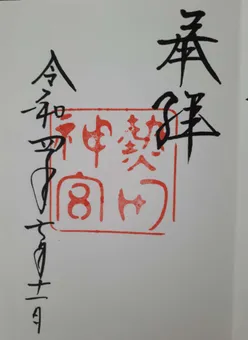 奉拝
熱田神宮
令和四年七月十一日